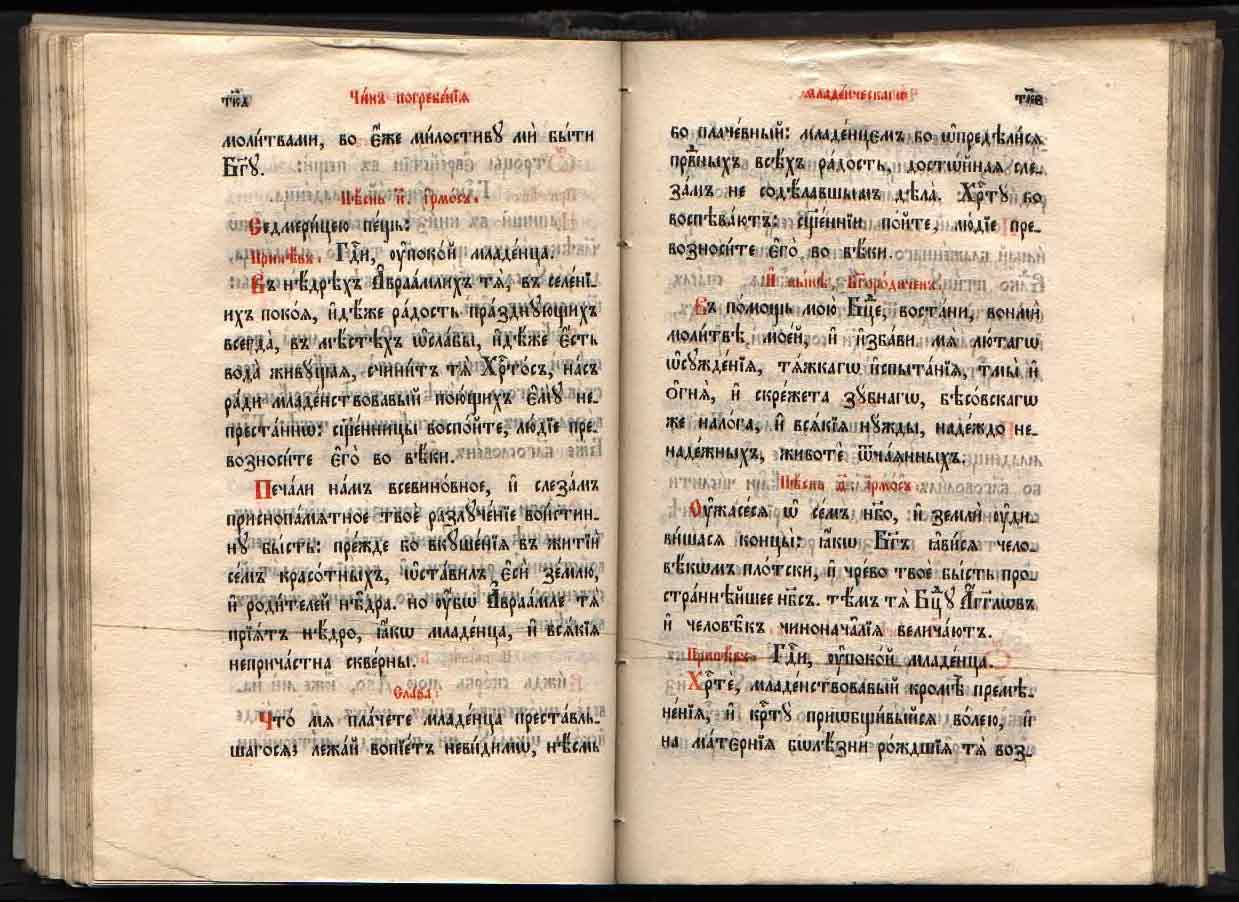 Чи́нъ погребе́нїѧ
моли́твами, во є҆́же ми́лостиву мѝ бы́ти
бг҃ꙋ.
Пѣ́снь и҃. І҆рмо́съ.
Седмери́цею пе́щь:
Припѣ́въ. Гдⷭ҇и, ᲂу҆поко́й младе́нца.
Въ нѣ́дрѣхъ а҆враа́млихъ тѧ̀, въ селе́нї-
ихъ поко́ѧ, и҆дѣ́же ра́дость пра́зднꙋющихъ
всегда̀, въ мѣ́стѣхъ ѡ҆сла́бы, и҆дѣ́же є҆́сть
вода̀ живꙋ́щаѧ, счини́тъ тѧ̀ хрⷭ҇то́съ, на́съ
ра́ди младе́нствовавый пою́щихъ є҆мꙋ̀ не-
преста́ннѡ: сщ҃е́нницы воспо́йте, лю́дїе пре-
возноси́те є҆го̀ во вѣ́ки.
Печа́ли на́мъ всевино́вное, и҆ слеза́мъ
приснопа́мѧтное твоѐ разлꙋче́нїе вои́стин-
нꙋ бы́сть: пре́жде бо вкꙋше́нїѧ въ житїѝ
се́мъ красо́тныхъ, ѡ҆ста́вилъ є҆сѝ зе́млю,
и҆ роди́телей нѣ̑дра. но ᲂу҆́бѡ а҆враа́мле тѧ̀
прїѧ́тъ нѣ́дро, ꙗ҆́кѡ младе́нца, и҆ всѧ́кїѧ
неприча́стна скве́рны.
Сла́ва:
Что́ мѧ пла́чете младе́нца преста́вль-
шагосѧ; лежа́й вопїе́тъ неви́димѡ, нѣ́смь
младе́нческагѡ
бо плаче́вный: младе́нцемъ бо ѡ҆предѣли́сѧ
првⷣныхъ всѣ́хъ ра́дость, досто́йнаѧ сле-
за́мъ не содѣ́лавшымъ дѣла̀. Хрⷭ҇тꙋ̀ бо
воспѣва́ютъ: сщ҃е́ннїи по́йте, лю́дїе пре-
возноси́те є҆го̀ во вѣ́ки.
И҆ ны́нѣ, бг҃оро́диченъ.
Въ по́мощь мою̀ бцⷣе, воста́ни, вонмѝ
моли́твѣ, мое́й, и҆ и҆зба́ви мѧ̀ лю́тагѡ
ѡ҆сꙋжде́нїѧ, тѧ́жкагѡ и҆спыта́нїѧ, тмы̀ и҆
ѻ҆гнѧ̀, и҆ скре́жета зꙋ́бнагѡ, бѣсо́вскагѡ
же нало́га, и҆ всѧ́кїѧ нꙋ́жды, наде́ждо не-
наде́жныхъ, животѐ ѿча́ѧнныхъ.
Пѣ́снь ѳ҃. І҆рмо́съ.
Оу҆жасе́сѧ ѡ҆ се́мъ нб҃о, и҆ землѝ ᲂу҆ди-
ви́шасѧ концы̀: ꙗ҆́кѡ бг҃ъ ꙗ҆ви́сѧ чело-
вѣ́кѡмъ пло́тски, и҆ чре́во твоѐ бы́сть про-
стра́ннѣйшее нб҃съ. тѣ́мъ тѧ̀ бцⷣꙋ а҆́гг҃лѡвъ
и҆ человѣ̑къ чинонача̑лїѧ велича́ютъ.
Припѣ́въ. Гдⷭ҇и, ᲂу҆поко́й младе́нца.
Хрⷭ҇тѐ, младе́нствовавый кромѣ̀ премѣ-
не́нїѧ, и҆ крⷭ҇тꙋ̀ приѡбщи́выйсѧ во́лею, и҆
на ма́тернїѧ бѡлѣ́зни ро́ждшїѧ тѧ̀ воз-